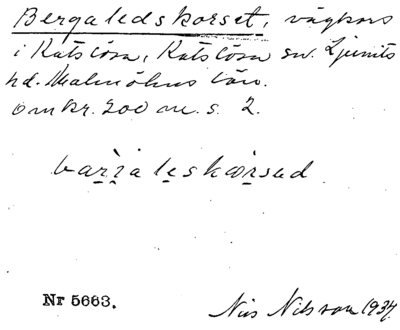 Bergaledskorset, vägkors
i Katslösa, Katslösa sn. Ljunits
hd. Malmöhus län.
omkr. 200 m. s. 2.
bar̤i̤a le̤skɷr̤sed.
Nr 5663.
Nils Nilsson 1934.